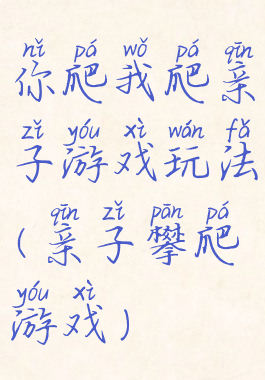 nǐ pá wǒ pá qīn
你爬我爬亲
zǐ yóu xì wán fǎ
子游戏玩法
qīn zǐ pān pá
(亲子攀爬
yóu xì
游戏)